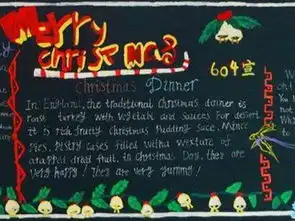 Merry
christmas
604宣
Christmas Dinner
In England, the traditional Christmas dinner is
roast turkey with vegetabl and sauces For desert
it is rich fruity Christmas Pudding sace. Mince
Pies. Pastry cases filled with a mixture of
drapped dried fruit. in Christmas Day, they are
very happy! They are very yummy!